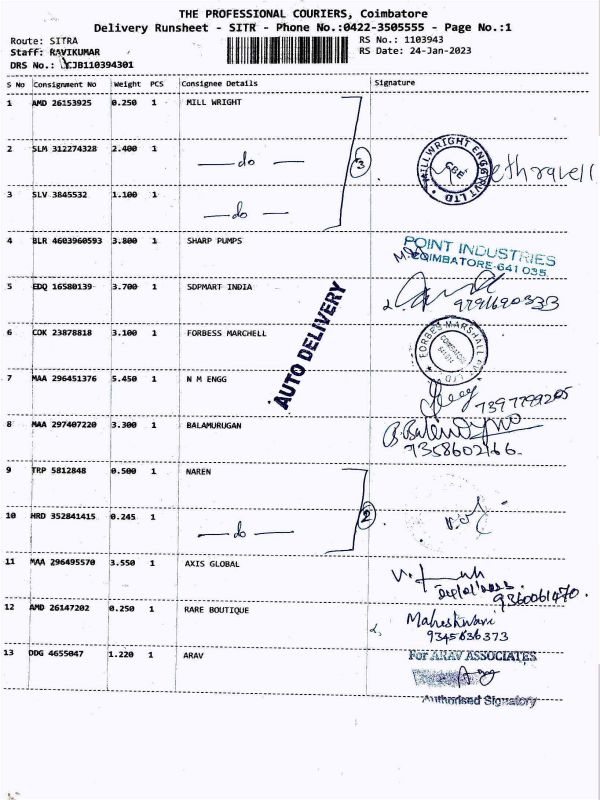 THE PROFESSIONAL COURIERS, Coimbatore
Delivery Runsheet - SITR - Phone No.:0422-3505555 - Page No.:1
Route: SITRA RS No.: 1103943
Staff: RAVIKUMAR RS Date: 24-Jan-2023
DRS No.: CJB110394301
S No Consignment No Weight PCS Consignee Details Signature
1 AMD 26153925 0.250 1 MILL WRIGHT
2 SLM 312274328 2.400 1 — do — 3
MILLWRIGHT ENGG PVT LTD CBE
3 SLV 3845532 1.100 1 — do —
4 BLR 4603960593 3.800 1 SHARP PUMPS
POINT INDUSTRIES
COIMBATORE-641 035
5 EDQ 16580139 3.700 1 SDPMART INDIA
9791690333
AUTO DELIVERY
6 COK 23878818 3.100 1 FORBESS MARCHELL
FORBES MARSHALL
7 MAA 296451376 5.450 1 N M ENGG
7397799205
8 MAA 297407220 3.300 1 BALAMURUGAN
7358602166
9 TRP 5812848 0.500 1 NAREN
10 HRD 352841415 0.245 1 — do — 2
11 MAA 296495570 3.550 1 AXIS GLOBAL
9360061470
12 AMD 26147202 0.250 1 RARE BOUTIQUE Maheshwari
9345636373
13 DDG 4655047 1.220 1 ARAV For ARAV ASSOCIATES
Authorised Signatory